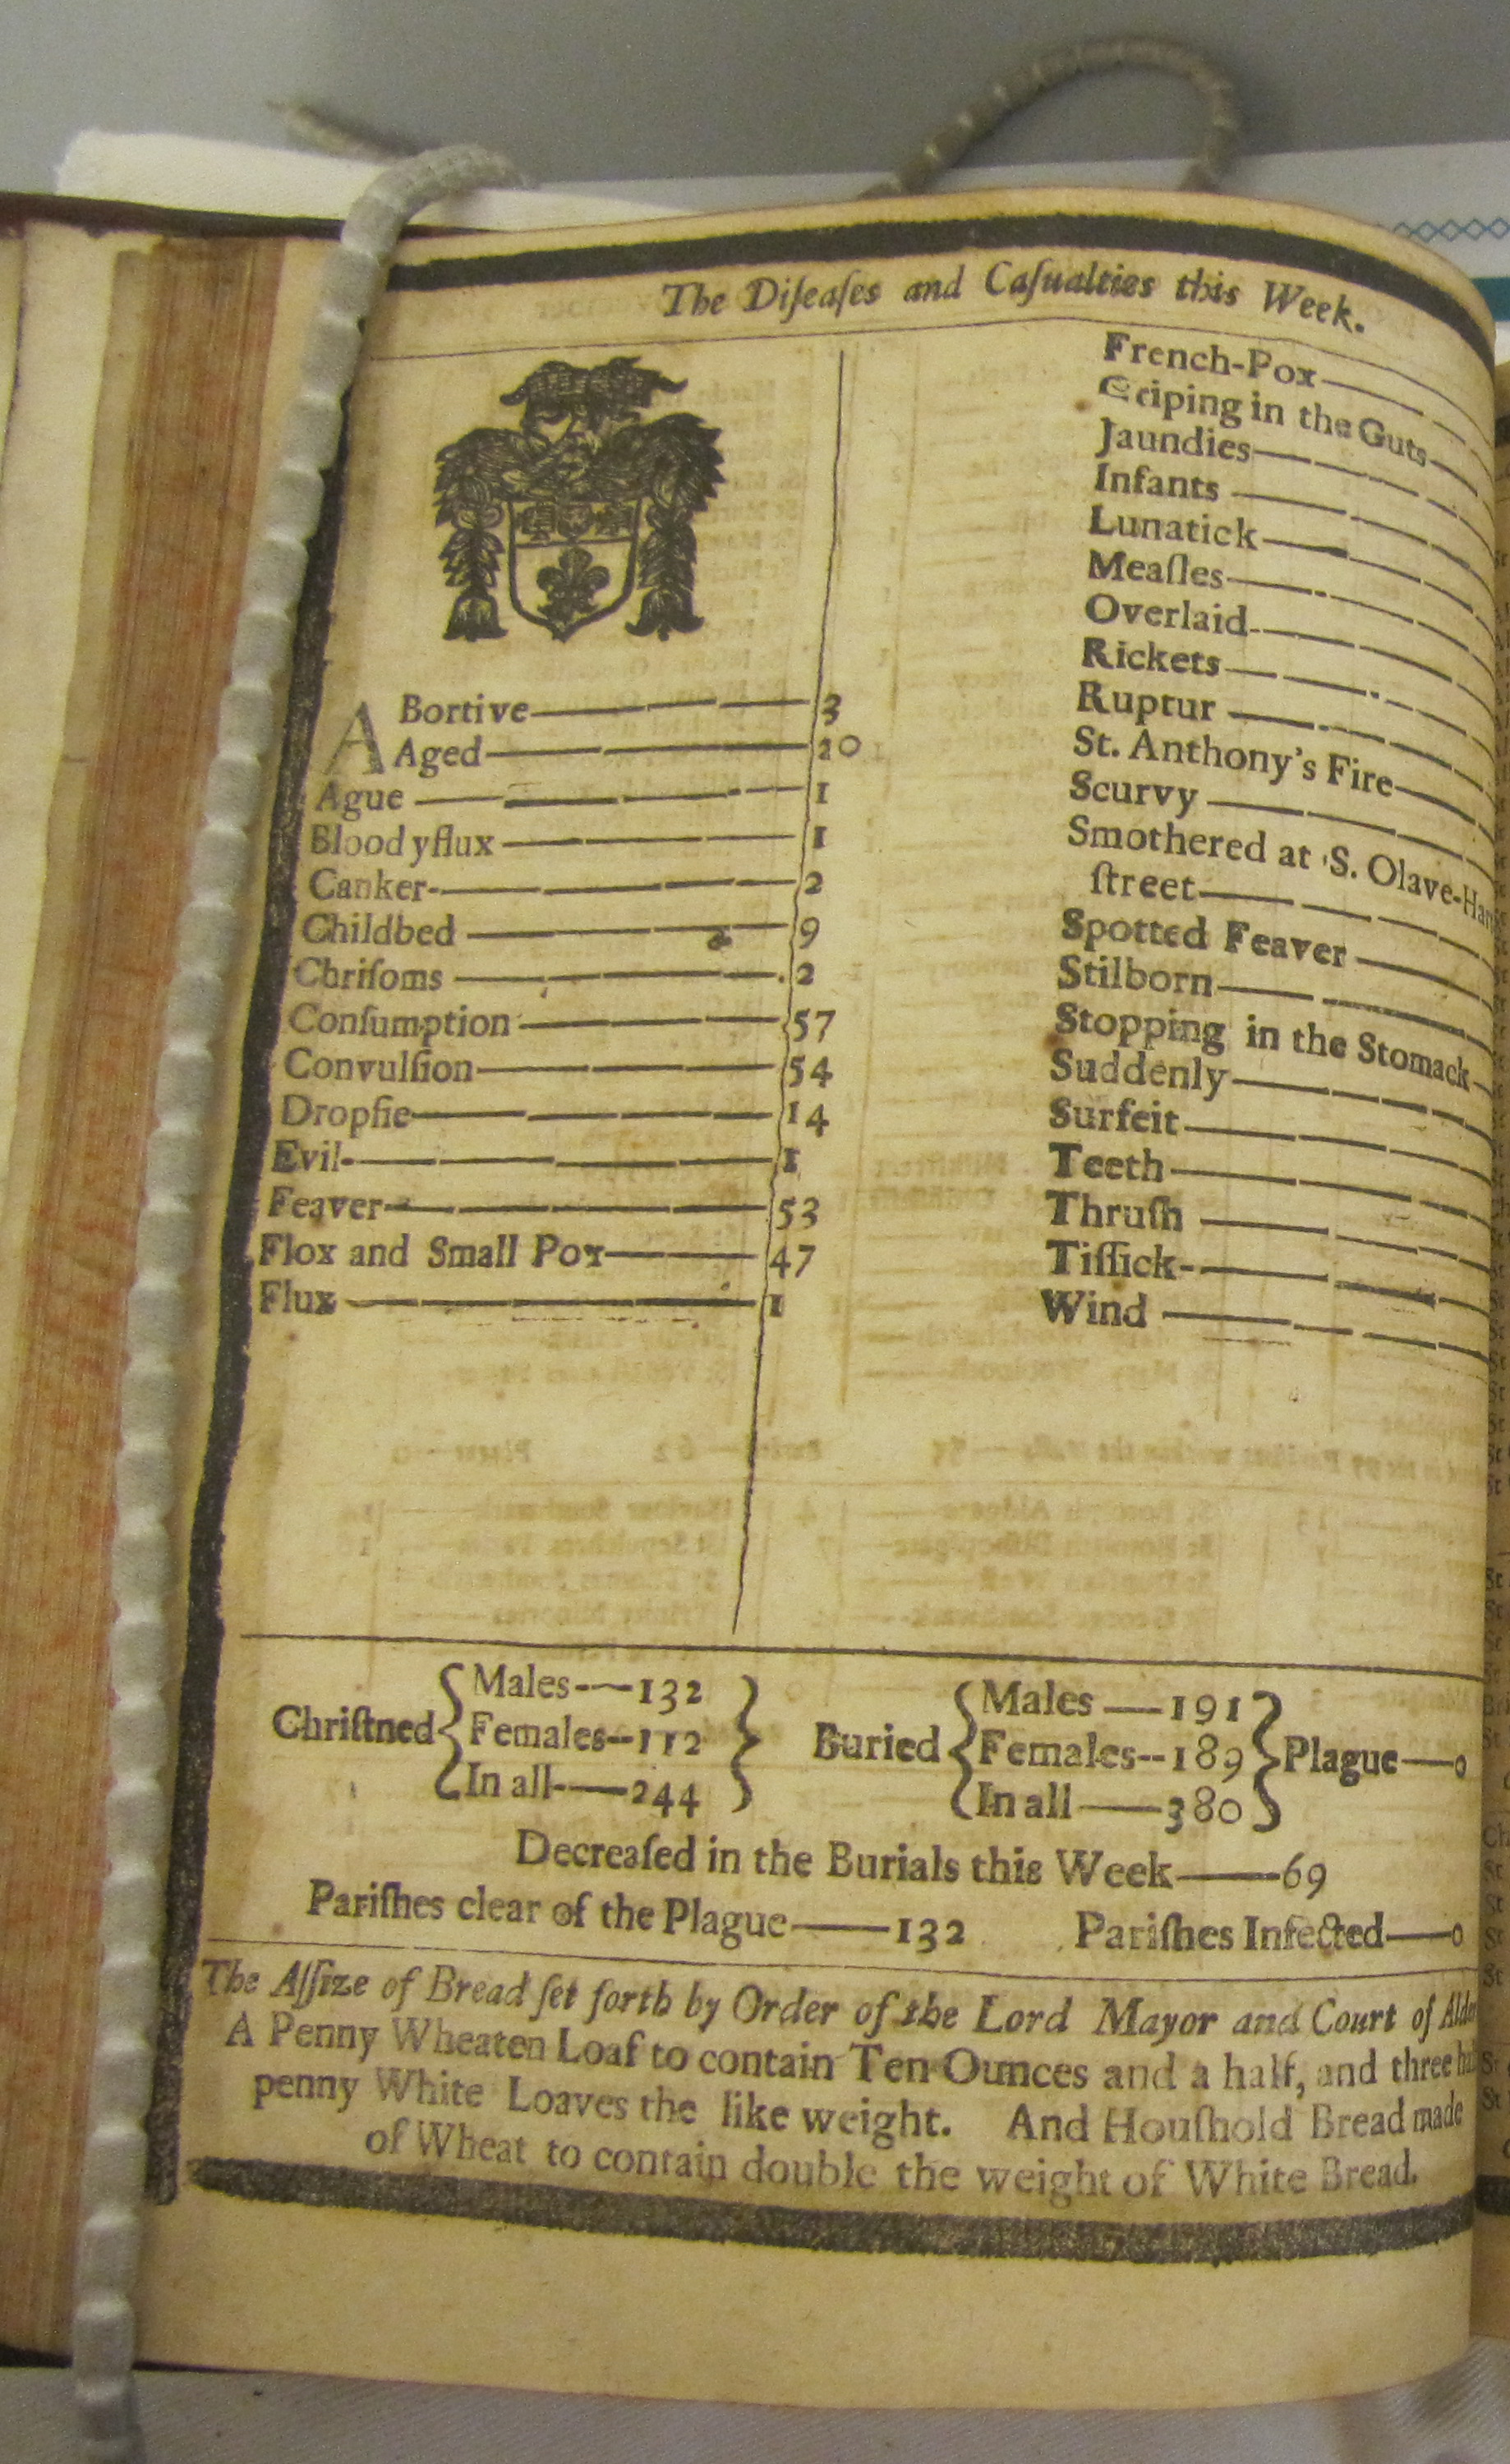 The Diſeaſes and Caſualties this Week.
ABortive 3
Aged 20
Ague 1
Bloodyflux 1
Canker 2
Childbed 9
Chriſoms 2
Conſumption 57
Convulſion 54
Dropſie 14
Evil 1
Feaver 53
Flox and Small Pox 47
Flux 1
French-Pox
Griping in the Guts
Jaundies
Infants
Lunatick
Meaſles
Overlaid
Rickets
Ruptur
St. Anthony's Fire
Scurvy
Smothered at S. Olave-
ſtreet
Spotted Feaver
Stilborn
Stopping in the Stomack
Suddenly
Surfeit
Teeth
Thruſh
Tiſſick
Wind
Chriſtned
Males 132
Females 112
In all 244
Buried
Males 191
Females 189
In all 380
Plague 0
Decreaſed in the Burials this Week 69
Pariſhes clear of the Plague 132 Pariſhes Infected 0
The Aſſize of Bread ſet forth by Order of the Lord Mayor and Court of
A Penny Wheaten Loaf to contain Ten Ounces and a half, and three
penny White Loaves the like weight. And Houſhold Bread made
of Wheat to contain double the weight of White Bread.